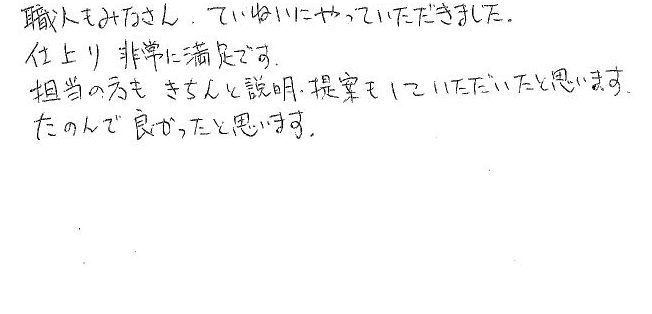 職人もみなさん、ていねいにやっていただきました。
仕上り 非常に満足です。
担当の方も きちんと説明・提案もしていただいたと思います。
たのんで良かったと思います。